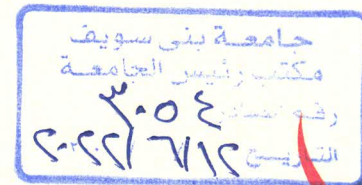 جامعة بنى سويف
مكتب رئيس الجامعة
رقم ٣٠٥٤
التاريخ ٢٠٢٢/٦/١٢